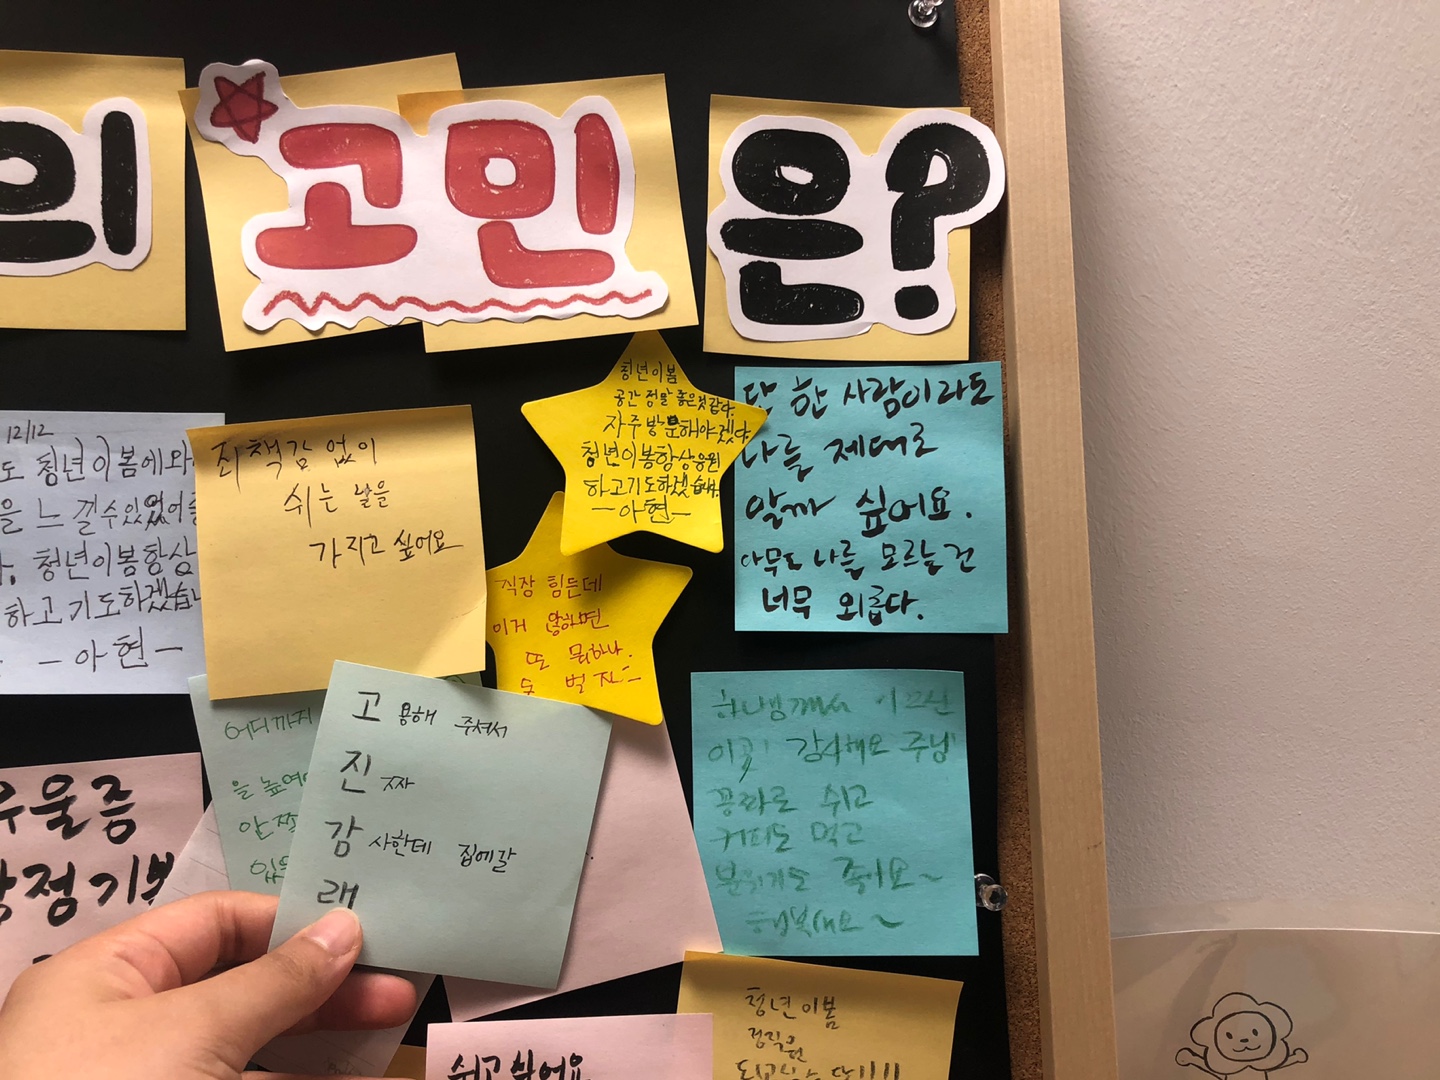 의 고민은?
12/12
도 청년이봄에와
을 느낄수있었어
청년이봄항상
하고기도하겠습니
-아현-
죄책감 없이
쉬는 날을
가지고 싶어요
청년이봄
공간 정말 좋은것같다.
자주방문해야겠다
청년이봄항상응원
하고기도하겠습니다.
-아현-
직장 힘든데
이거 않하면
또 뭐하나.
돈 벌자
단 한 사람이라도
나를 제대로
알까 싶어요.
아무도 나를 모르는건
너무 외롭다.
어디까지
을 높여
안쪽
고용해 주셔서
진짜
감사한데 집에갈
래
하나님께서 이끄신
이곳! 감사해요 주님!
공짜로 쉬고
커피도 먹고
분위기도 좋아요~
행복해요~
우울증
감정기복
쉬고싶어요
청년이봄
정직원
되고싶습니다!!!!